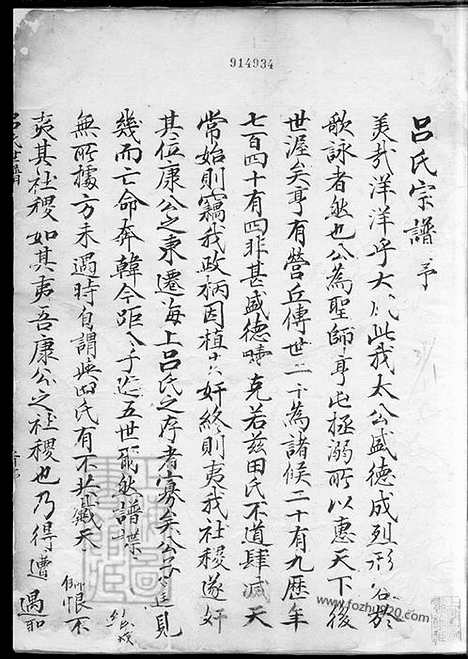 914934
呂氏宗譜序
美哉洋洋乎大風此我太公盛德成烈形容於
歌詠者然也公為聖師享此極溺所以惠天下後
世渥矣享有營丘傳世二十為諸候二十有九歷年
七百四十有四非甚盛德疇克若茲田氏不道肆滅天
常始則竊我政柄因植其奸終則夷我社稷遂奸
其位康公之東遷海上呂氏之存者寡矣公
幾而亡命奔韓今距今五世爾然譜牒
無所據方未遇時自謂與田氏有不共戴天
恨不
夷其社稷如其夷吾康公之社稷也乃得遭遇
呂氏世譜
www.fozhu920.com